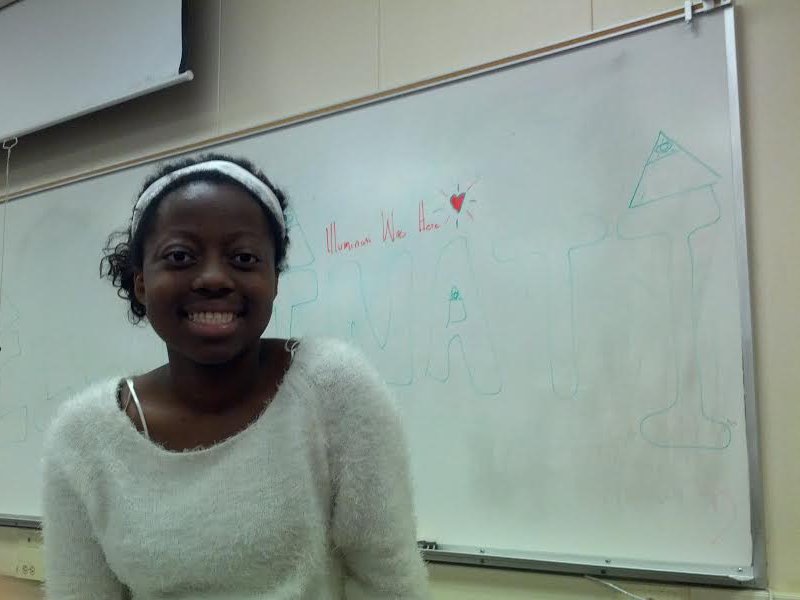 Illuminati Was Here
INATI